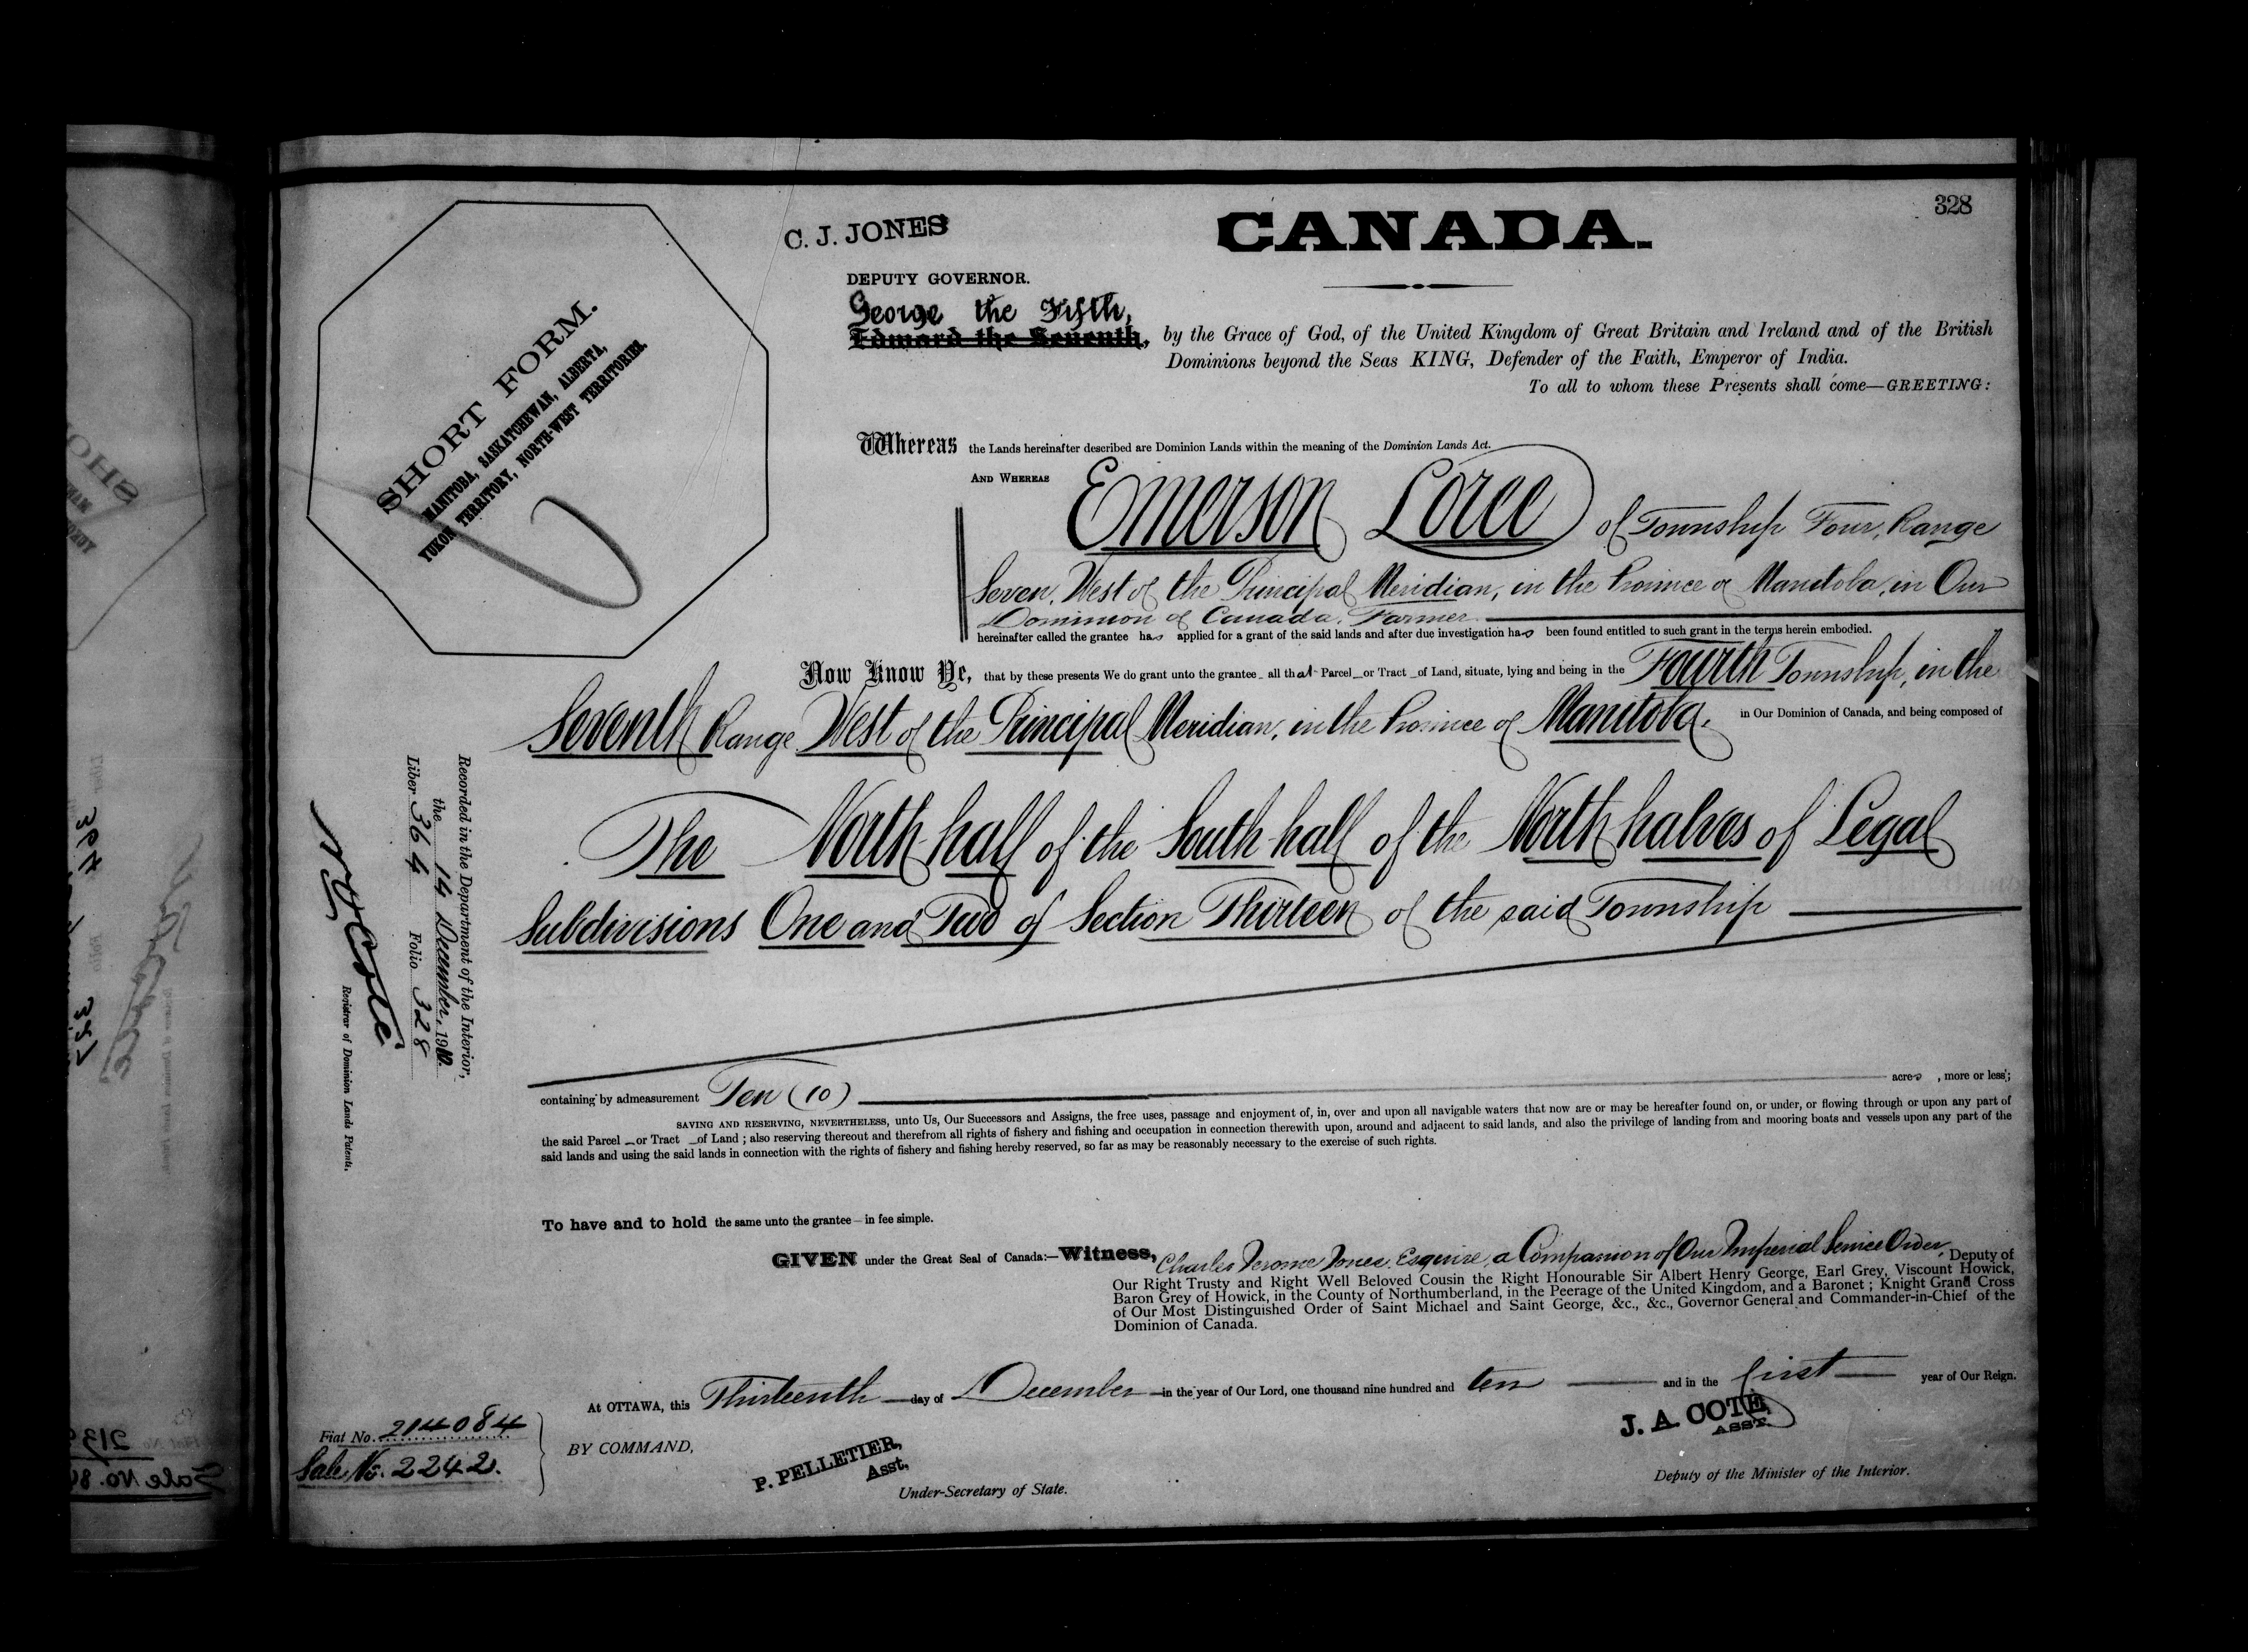 328
C. J. JONES
CANADA.
DEPUTY GOVERNOR.
George the Fifth,
Edward the Seventh, by the Grace of God, of the United Kingdom of Great Britain and Ireland and of the British
Dominions beyond the Seas KING, Defender of the Faith, Emperor of India.
To all to whom these Presents shall come—GREETING:
SHORT FORM.
MANITOBA, SASKATCHEWAN, ALBERTA,
YUKON TERRITORY, NORTH-WEST TERRITORIES.
Whereas the Lands hereinafter described are Dominion Lands within the meaning of the Dominion Lands Act.
AND WHEREAS Emerson Loree of Township Four, Range
Seven, West of the Principal Meridian, in the Province of Manitoba, in Our
Dominion of Canada, Farmer
hereinafter called the grantee has applied for a grant of the said lands and after due investigation has been found entitled to such grant in the terms herein embodied.
Now Know Ye, that by these presents We do grant unto the grantee all that Parcel or Tract of Land, situate, lying and being in the Fourth Township, in the
Seventh Range West of the Principal Meridian, in the Province of Manitoba. in Our Dominion of Canada, and being composed of
The North half of the South half of the North halves of Legal
Subdivisions One and Two of Section Thirteen of the said Township
Recorded in the Department of the Interior,
the 14 December, 1910.
Liber 364 Folio 328
N. O. Coté
Registrar of Dominion Lands Patents.
containing by admeasurement Ten (10) acres, more or less;
SAVING AND RESERVING, NEVERTHELESS, unto Us, Our Successors and Assigns, the free uses, passage and enjoyment of, in, over and upon all navigable waters that now are or may be hereafter found on, or under, or flowing through or upon any part of
the said Parcel or Tract of Land; also reserving thereout and therefrom all rights of fishery and fishing and occupation in connection therewith upon, around and adjacent to said lands, and also the privilege of landing from and mooring boats and vessels upon any part of the
said lands and using the said lands in connection with the rights of fishery and fishing hereby reserved, so far as may be reasonably necessary to the exercise of such rights.
To have and to hold the same unto the grantee in fee simple.
GIVEN under the Great Seal of Canada:—Witness, Charles Jerome Jones, Esquire, a Companion of Our Imperial Service Order, Deputy of
Our Right Trusty and Right Well Beloved Cousin the Right Honourable Sir Albert Henry George, Earl Grey, Viscount Howick,
Baron Grey of Howick, in the County of Northumberland, in the Peerage of the United Kingdom, and a Baronet; Knight Grand Cross
of Our Most Distinguished Order of Saint Michael and Saint George, &c., &c., Governor General and Commander-in-Chief of the
Dominion of Canada.
At OTTAWA, this Thirteenth day of December in the year of Our Lord, one thousand nine hundred and ten and in the first year of Our Reign.
Fiat No. 214084
Sale No. 2242.
BY COMMAND,
P. PELLETIER,
Asst.
Under-Secretary of State.
J. A. COTE,
ASST.
Deputy of the Minister of the Interior.